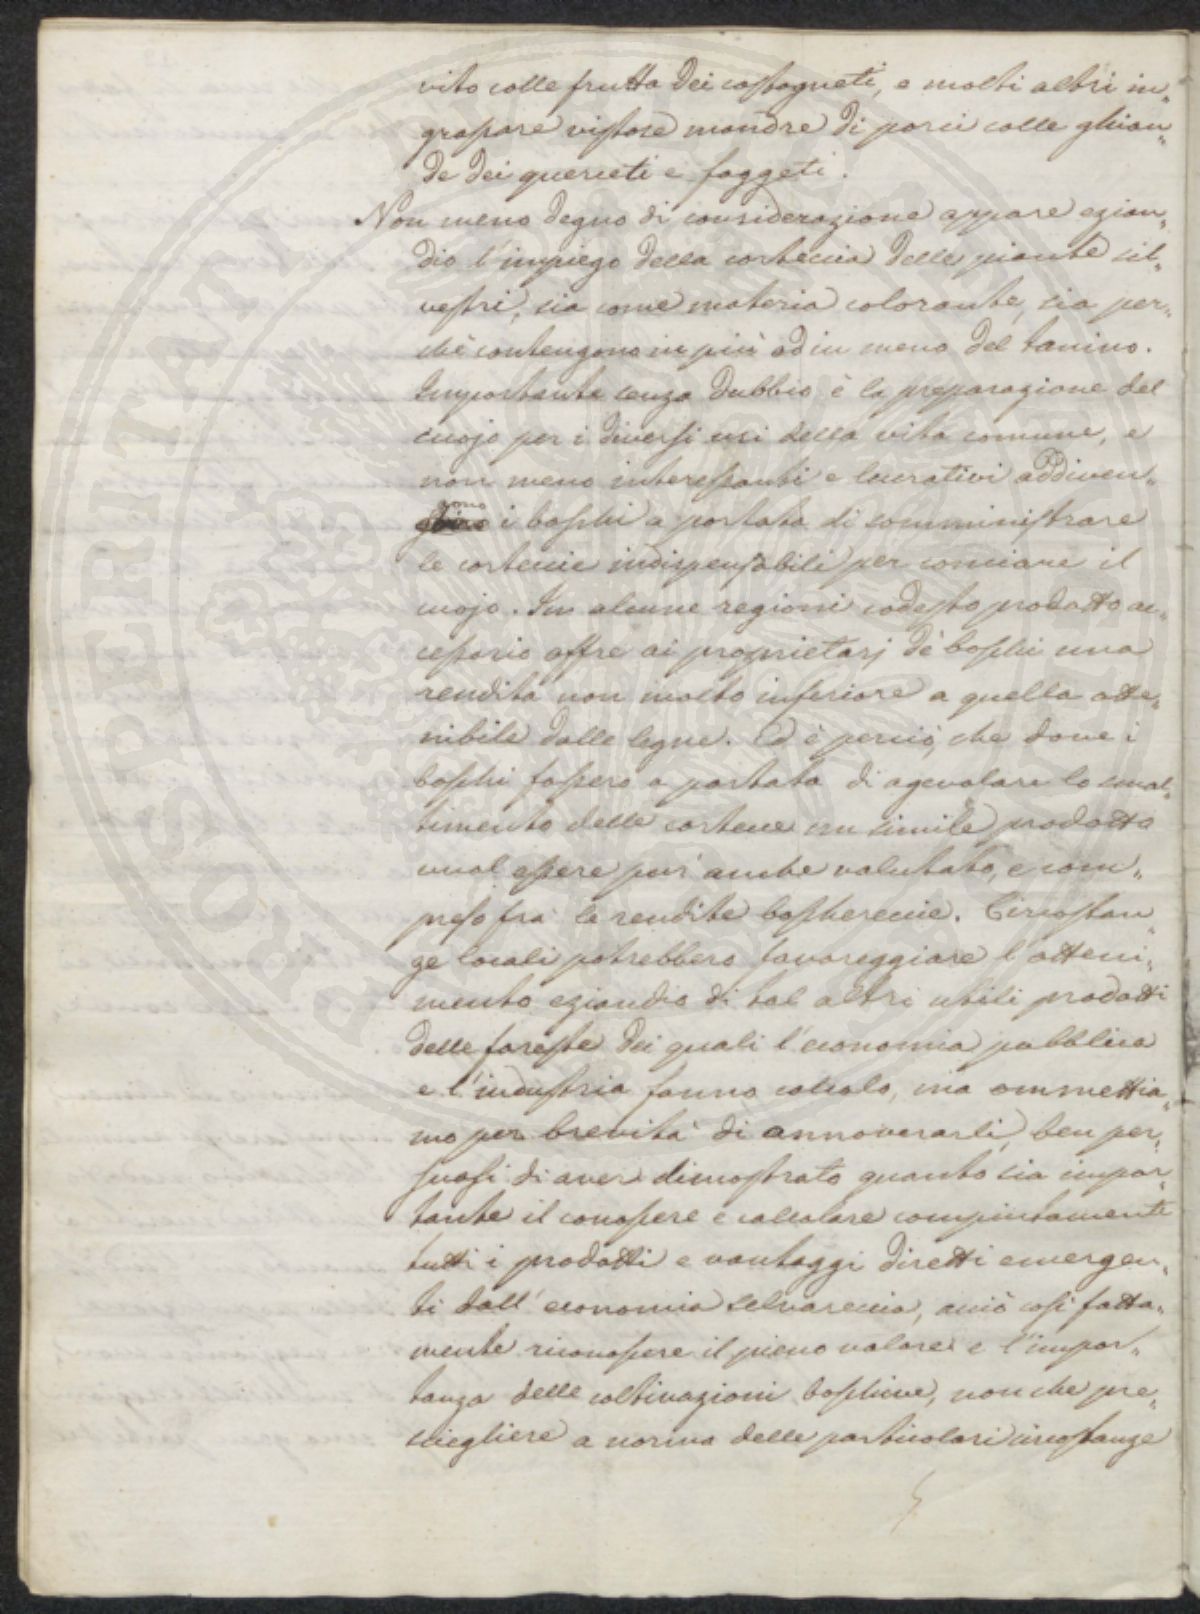 vito colle frutta dei castagneti, e molti altri in„
grassare vistose mandre di porci colle ghian„
de dei querceti e faggeti.
Non meno degno di considerazione appare ezian„
dio l'impiego della corteccia delle piante sil„
vestri, sia come materia colorante, sia per„
chè contengono in più od in meno del tanino.
Importante senza dubbio è la preparazione del
cuojo per i diversi usi della vita comune, e
non meno interessanti e lucrativi addiven„
gono i boschi a portata di somministrare
le corteccie indispensabili per conciare il
cuojo. In alcune regioni codesto prodotto ac„
cessorio offre ai proprietarj de' boschi una
rendita non molto inferiore a quella otte„
nibile dalle legne. Ed è perciò, che dove i
boschi fossero a portata di agevolare lo smal„
timento delle cortecce un simile prodotto
vuol essere pur anche valutato, e com„
preso fra le rendite boschereccie. Circostan„
ze locali potrebbero favoreggiare l'otteni„
mento eziandio di tal altri utili prodotti
delle foreste dei quali l'economia pubblica
e l'industria fanno calcolo, ma ommettia„
mo per brevità di annoverarli, ben per„
suasi di aver dimostrato quanto sia impor„
tante il conoscere e calcolare compiutamente
tutti i prodotti e vantaggi diretti emergen„
ti dall'economia selvareccia, acciò così fatta„
mente riconoscere il pieno valore e l'impor„
tanza delle coltivazioni boschive, non che pre„
scegliere a norma delle particolari circostanze
PROSPERITATI